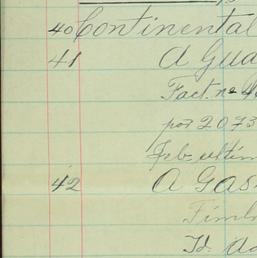 40 Continental
41 A Gua
Fact. nº 4
por 2073
Feb. últim
42 A Gas
Timb
Id. ad